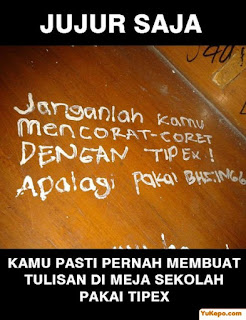 JUJUR SAJA
Janganlah kamu
MENCORAT-CORET
DENGAN TIPEX!
Apalagi pakai
KAMU PASTI PERNAH MEMBUAT
TULISAN DI MEJA SEKOLAH
PAKAI TIPEX
YuKepo.com